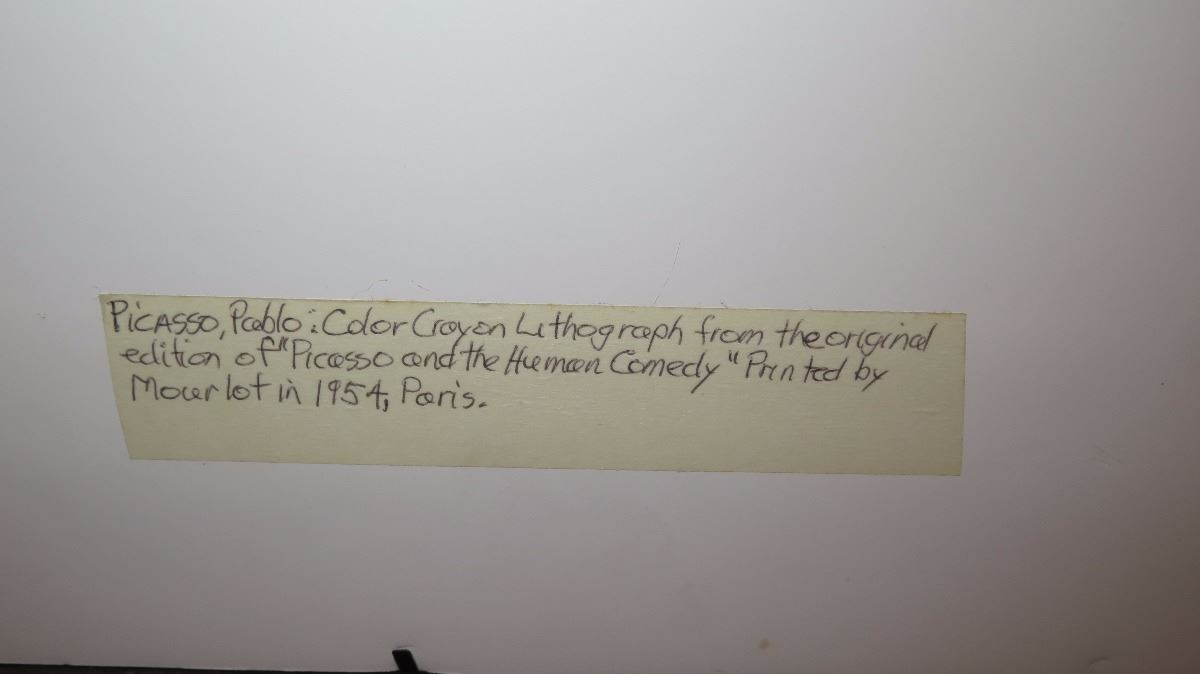 Picasso, Pablo: Color Crayon Lithograph from the original
edition of "Picasso and the Human Comedy" Printed by
Mourlot in 1954, Paris.